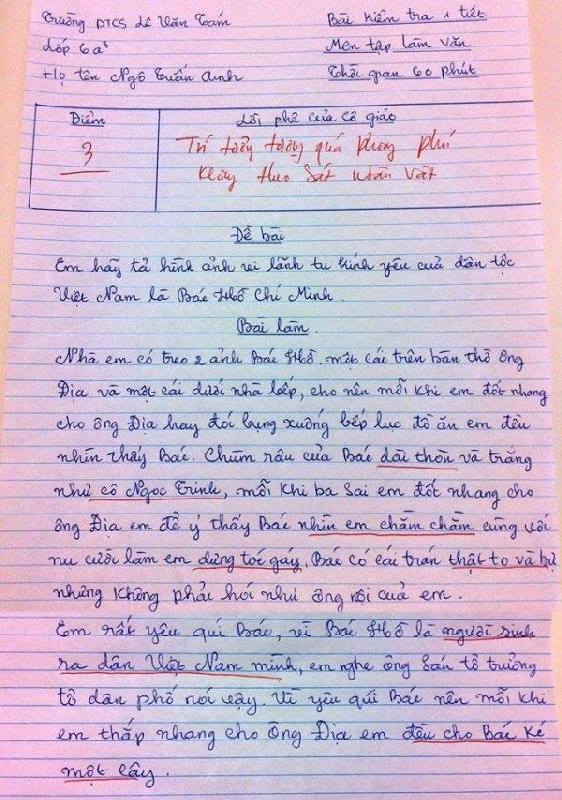 Trường PTCS Lê Văn Tám
Bài kiểm tra 1 tiết
Lớp 6a³
Môn tập làm văn
Họ tên Ngô Tuấn Anh
Thời gian 60 phút
Điểm
Lời phê của cô giáo
3
Trí tưởng tượng quá phong phú
không theo sát nhân vật
Đề bài
Em hãy tả hình ảnh vị lãnh tụ kính yêu của dân tộc
Việt Nam là Bác Hồ Chí Minh.
Bài làm.
Nhà em có treo 2 ảnh Bác Hồ một cái trên bàn thờ ông
Địa và một cái dưới nhà bếp, cho nên mỗi khi em đốt nhang
cho ông Địa hay đói bụng xuống bếp lục đồ ăn em đều
nhìn thấy Bác. Chùm râu của Bác dài thòn và trắng
như cô Ngọc Trinh, mỗi khi ba sai em đốt nhang cho
ông Địa em để ý thấy Bác nhìn em chằm chằm cùng với
nụ cười làm em dựng tóc gáy. Bác có cái trán thật to và bự
nhưng không phải hói như ông nội của em.
Em rất yêu quí Bác, vì Bác Hồ là người sinh
ra dân Việt Nam mình, em nghe ông Sáu tổ trưởng
tổ dân phố nói vậy. Vì yêu quí Bác nên mỗi khi
em thắp nhang cho Ông Địa em đều cho Bác ké
một cây.